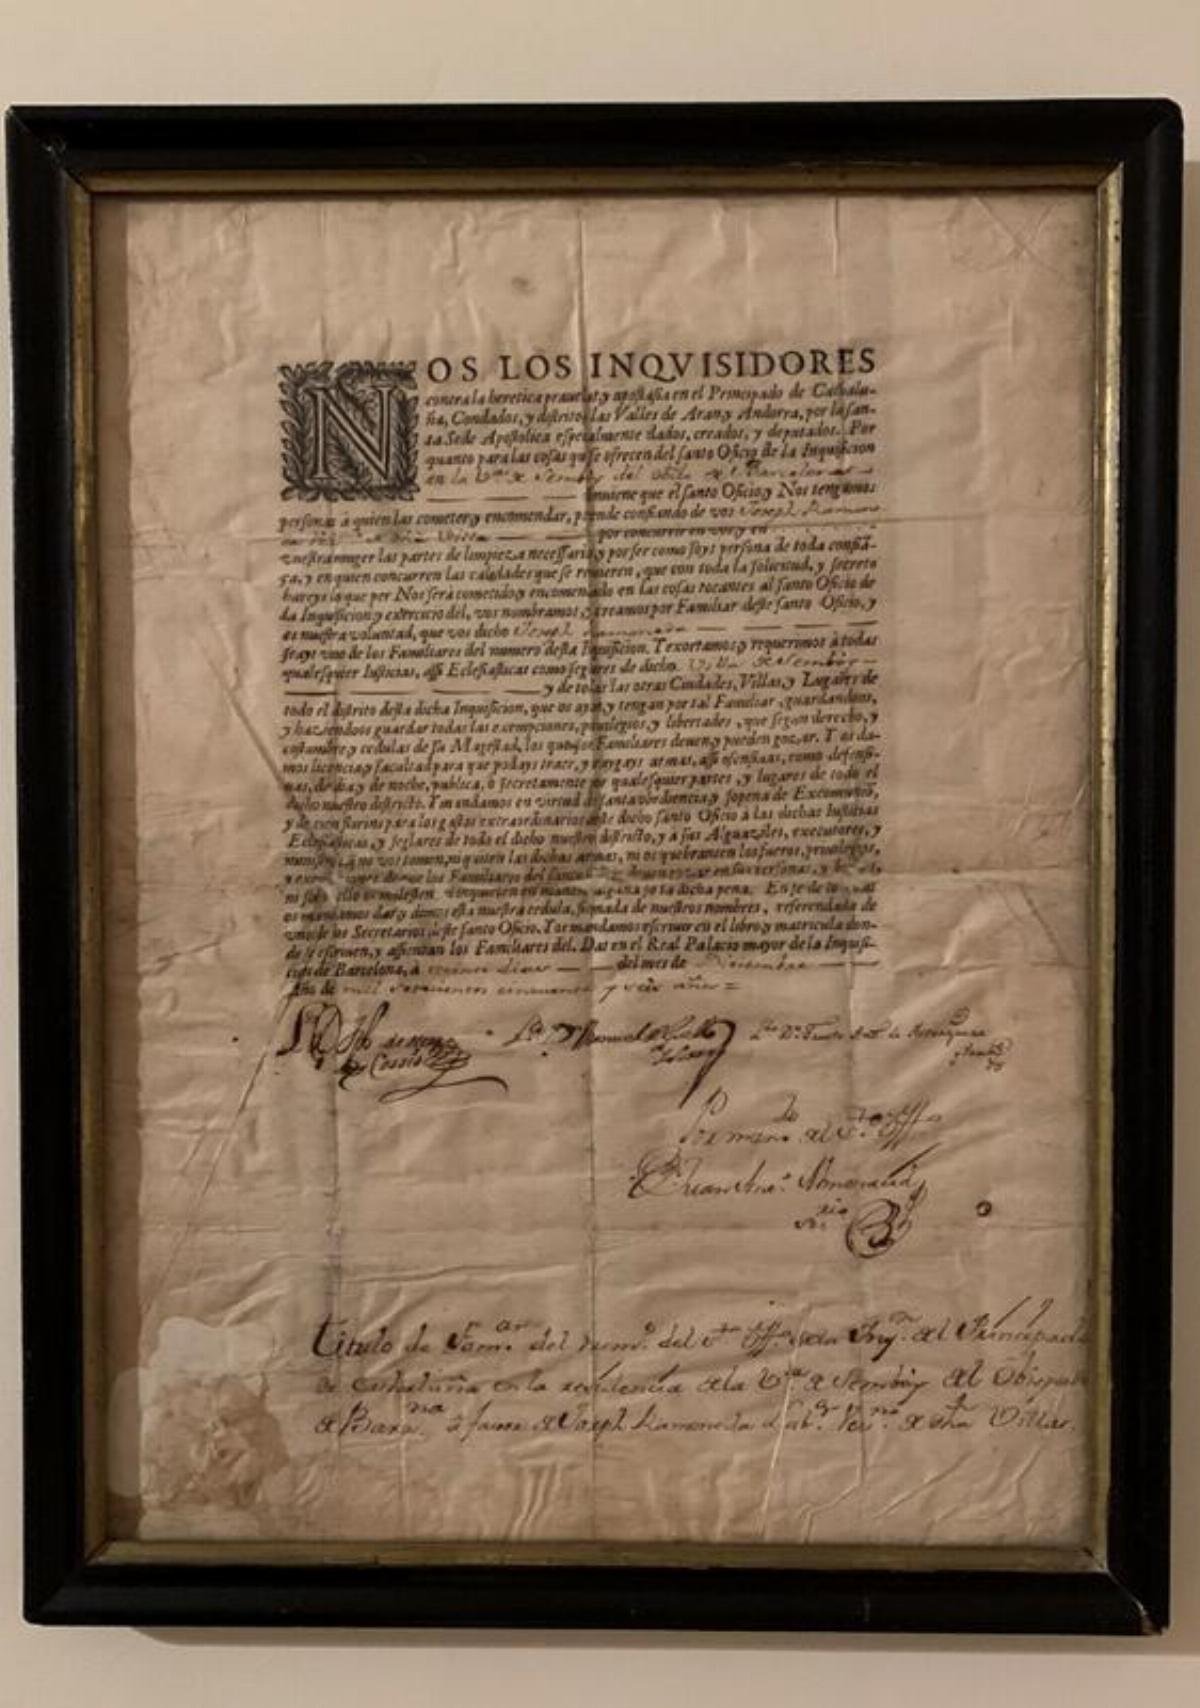 NOS LOS INQVISIDORES
contra la heretica prauedat, y apostasia en el Principado de Cathalu-
ña, Condados, y distrito, las Valles de Aran, y Andorra, por la san-
ta Sede Apostolica especialmente dados, creados, y deputados. Por
quanto para las cosas que se ofrecen del santo Oficio de la Inquisicion
en la
conuiene que el santo Oficio, y Nos tengamos
personas à quien las cometer, y encomendar, por ende confiando de vos Joseph
por concurrir en vos, y en
vuestra muger las partes de limpieza necessaria, y por ser como soys persona de toda confiã-
ça, y en quien concurren las calidades que se requieren, que con toda la solicitud, y secreto
hareys lo que por Nos serà cometido, y encomendado en las cosas tocantes al santo Oficio de
la Inquisicion, y exercicio del, vos nombramos, y creamos por Familiar deste santo Oficio, y
es nuestra voluntad, que vos dicho Joseph Ramoneda
seays vno de los Familiares del numero desta Inquisicion. Y exortamos, y requerimos à todas
qualesquier Iusticias, assi Eclesiasticas como seglares de dicho Villa
y de todas las otras Ciudades, Villas, y Lugares de
todo el distrito desta dicha Inquisicion, que os ayan, y tengan por tal Familiar, guardandoos,
y haziendoos guardar todas las excempciones, priuilegios, y libertades, que segun derecho, y
costumbre, y cedulas de su Magestad, los que son Familiares deuen, y pueden gozar. Y os da-
mos licencia, y facultad para que podays traer, y traygays armas, assi ofensiuas, como defensi-
uas, de dia, y de noche, publica, ò secretamente por qualesquier partes, y lugares de todo el
dicho nuestro districto. Y mandamos en virtud de santa obediencia, y sopena de Excomuniõ,
y de cien florins para los gastos extraordinarios deste dicho santo Oficio à las dichas Iusticias
Eclesiasticas, y seglares de todo el dicho nuestro districto, y à sus Alguaziles, executores, y
ministros, que no vos tomen, ni quiten las dichas armas, ni os quebranten los fueros, priuilegios,
y que los Familiares del santo gozar en sus personas, y
ni sobre ello os molesten, ni inquieten en manera alguna so la dicha pena. En fe de lo qual
os mandamos dar, y dimos esta nuestra cedula, firmada de nuestros nombres, referendada de
vno de los Secretarios deste santo Oficio. Y os mandamos escriuir en el libro, y matricula don-
de se escriuen, y assientan los Familiares del. Dat en el Real Palacio mayor de la Inquisi-
cion de Barcelona, à dias del mes de
Año de mil setecientos cinquenta y seis años =
Cossio
Por mand.do
Titulo de Fam.ar del num.o del S.to Off.o dela Inq.on del Principado
de Cathaluña en la residencia dela V.a de del Obispado
de Bar.na à favor de Joseph Ramoneda de dha Villa.